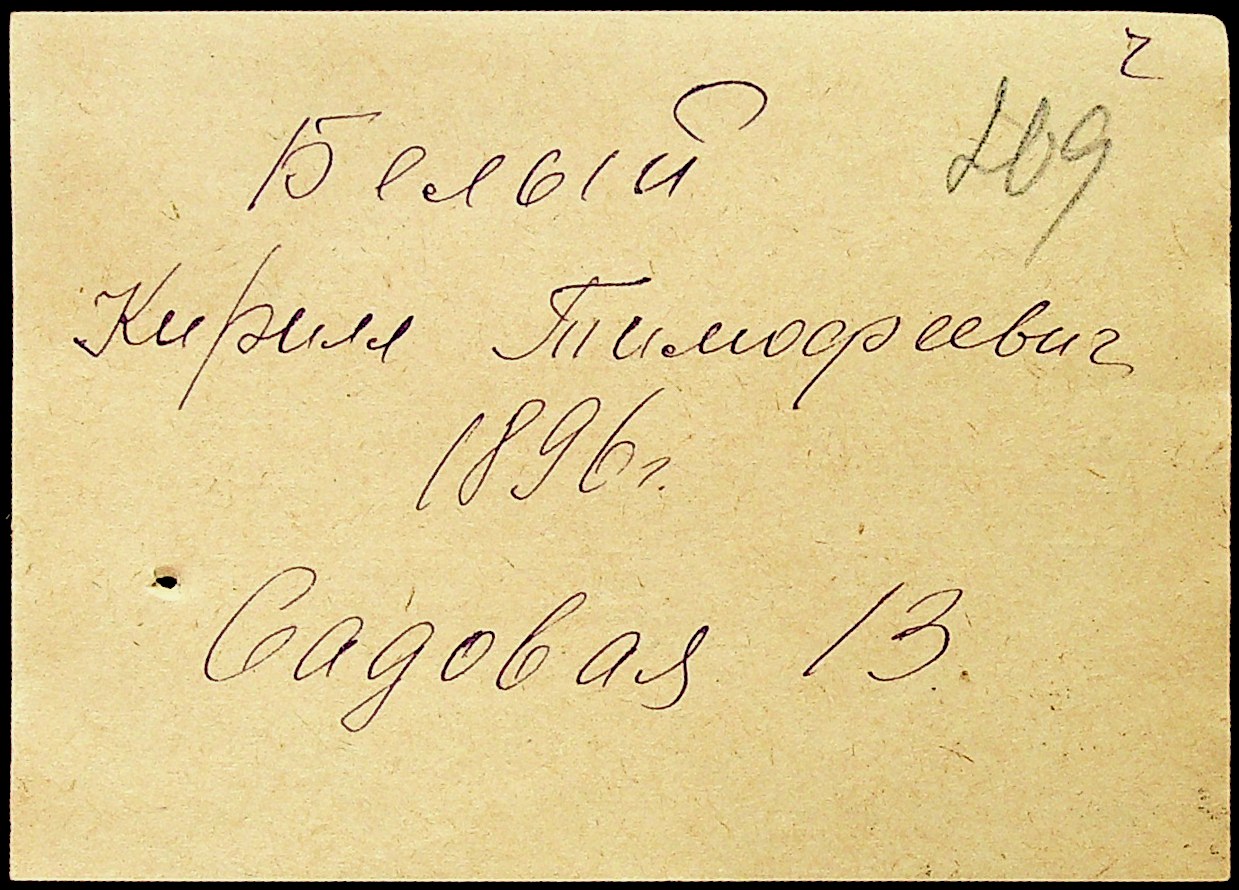 ч
Белый
Кирилл Тимофеевич
1896 г.
Садовая 13.